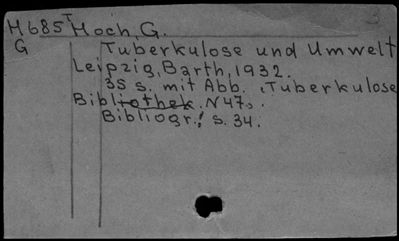 H685T Hoch, G.
G Tuberkulose und Umwelt
Leipzig, Barth, 1932.
35 s. mit Abb. (Tuberkulose
Bibliothek. N47).
Bibliogr.: s. 34.